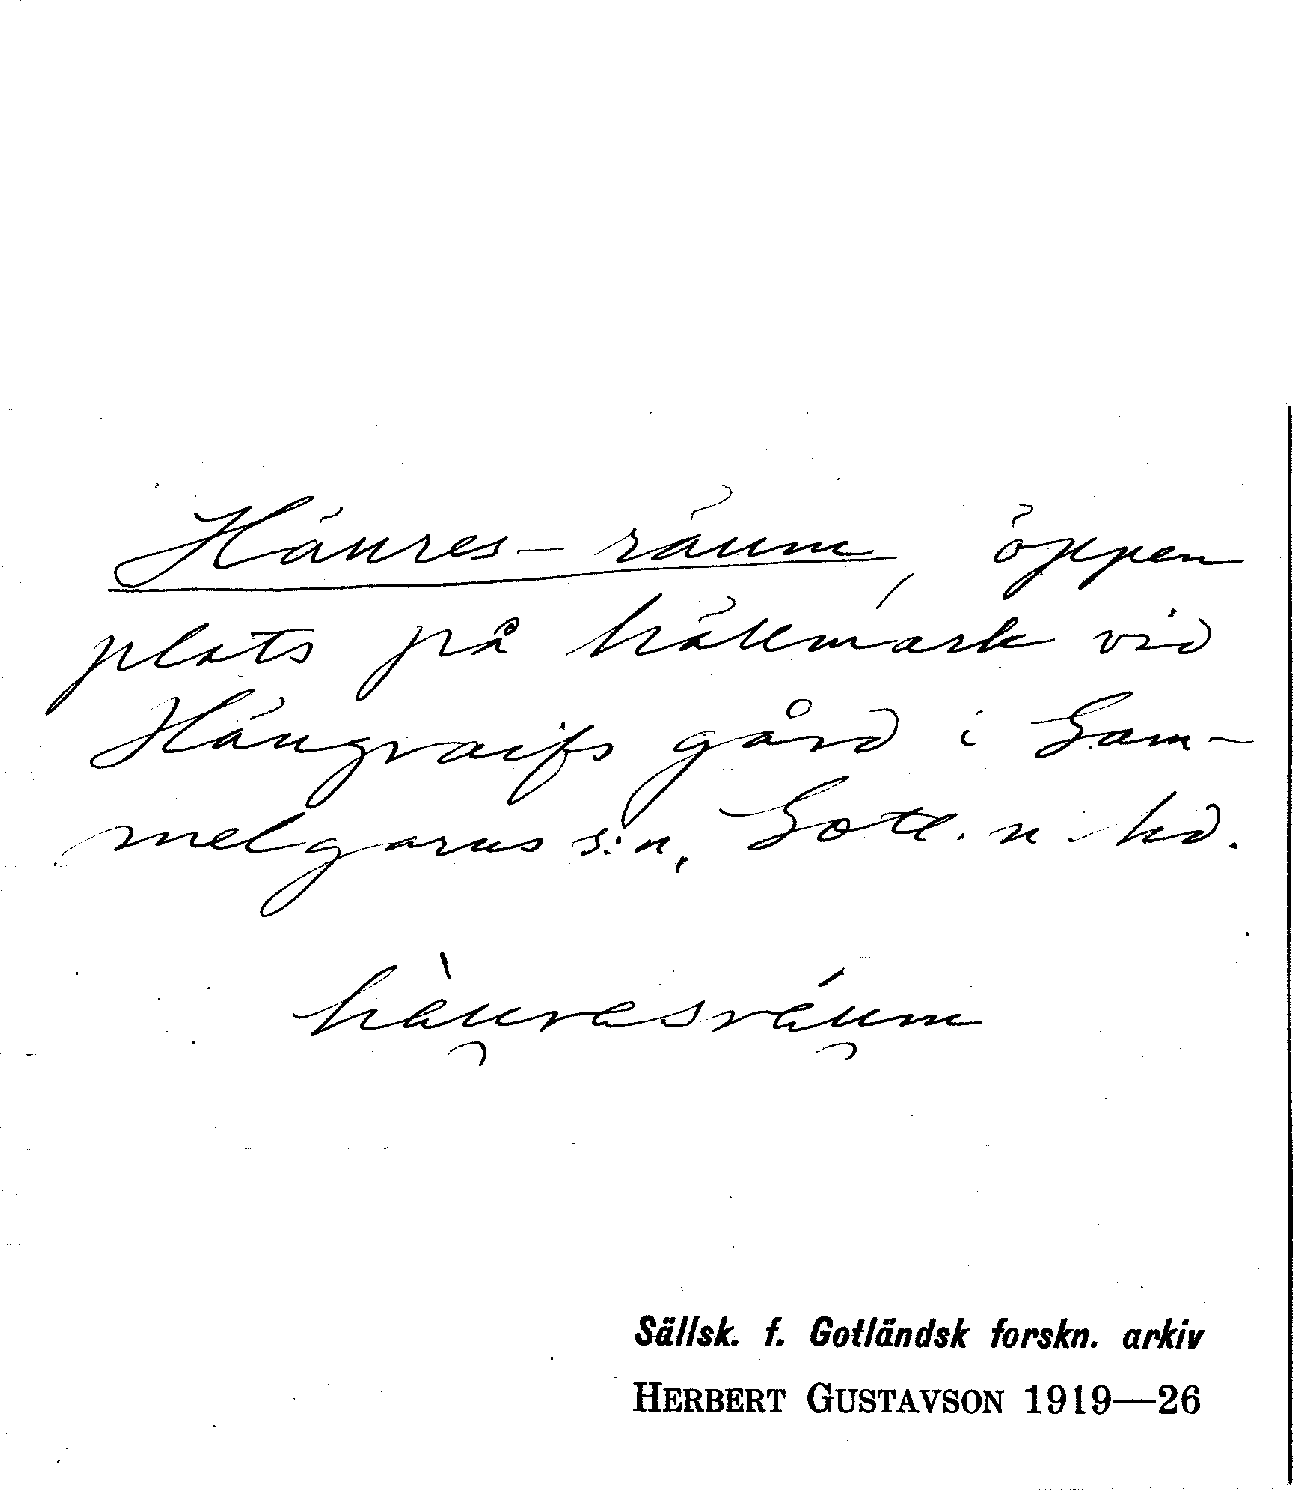 Häures-räum, öppen
plats på hällmark vid
Häugraifs gård i Gam-
melgarns s:n, Gotl. n hd.
häuresräum
Sällsk. f. Gotländsk forskn. arkiv
HERBERT GUSTAVSON 1919—26